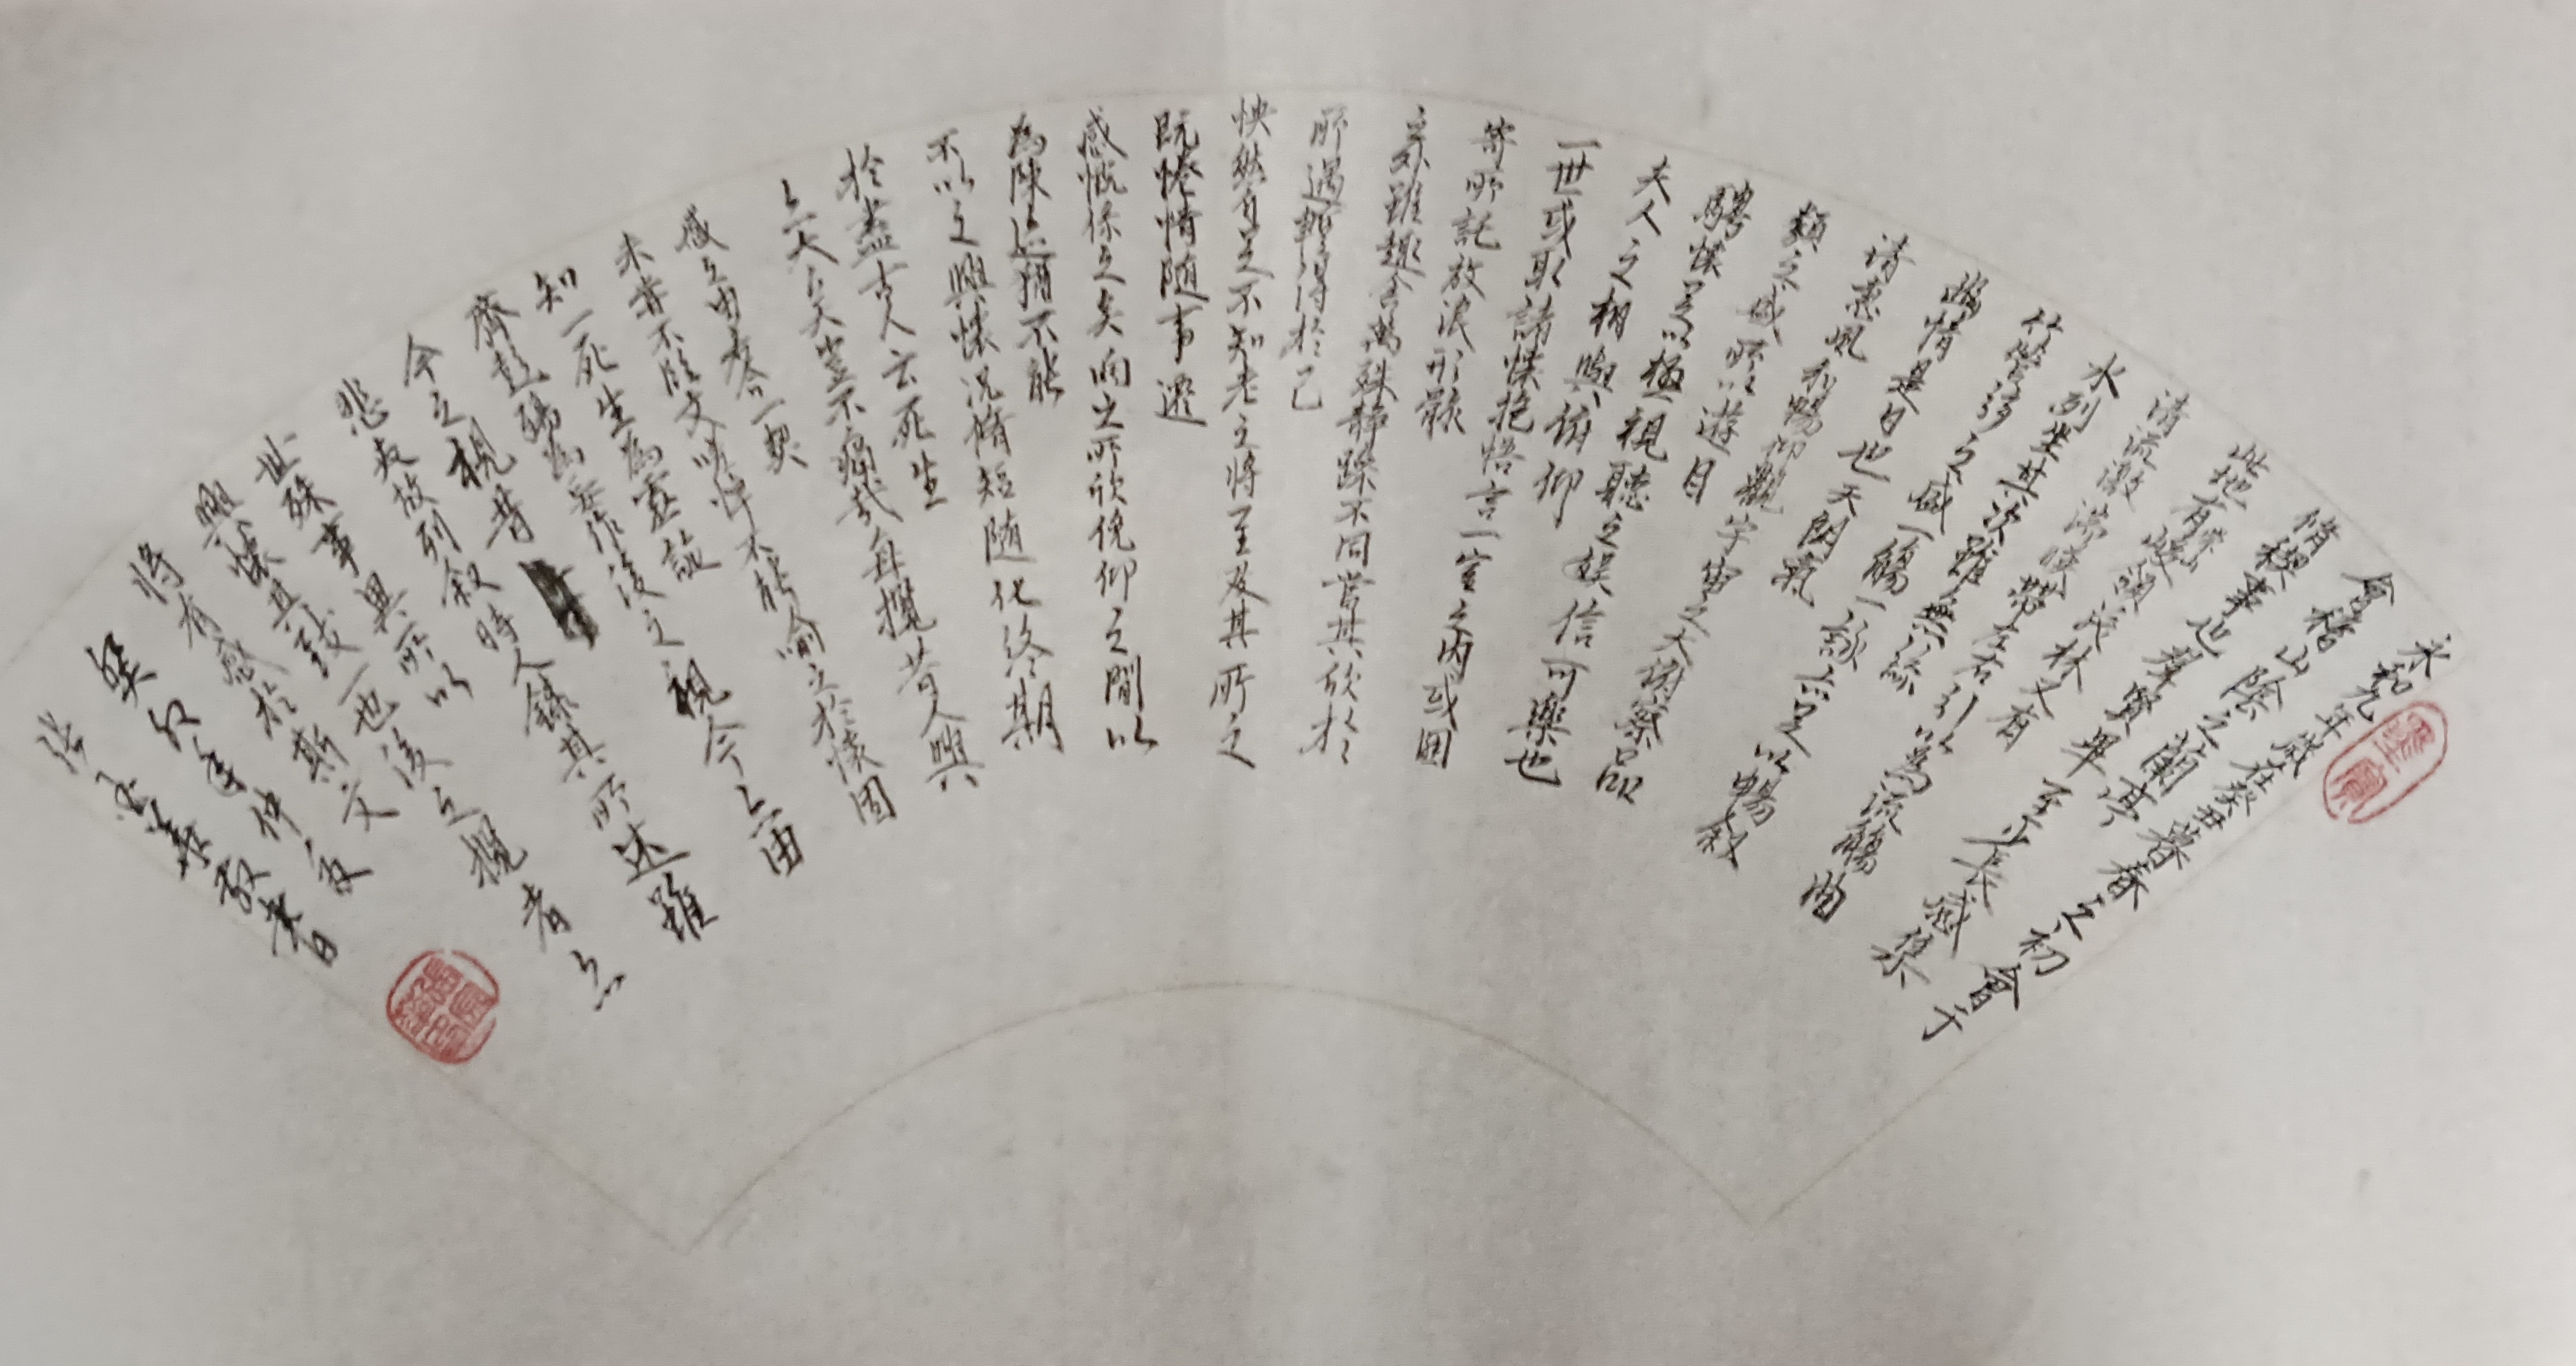 永和九年歲在癸丑暮春之初會于
會稽山陰之蘭亭
脩禊事也羣賢畢至少長咸集
此地有崇山峻領茂林又有
清流激湍暎帶左右引以為流觴曲
水列坐其次雖無絲
竹管弦之盛一觴一詠亦足以暢敘
幽情是日也天朗氣
清惠風和暢仰觀宇宙之大俯察品
類之盛所以遊目
騁懷足以極視聽之娛信可樂也
夫人之相與俯仰
一世或取諸懷抱悟言一室之內或因
寄所託放浪形骸
之外雖趣舍萬殊靜躁不同當其欣於
所遇暫得於己
怏然自足不知老之將至及其所之
既惓情隨事遷
感慨係之矣向之所欣俛仰之間以
為陳迹猶不能
不以之興懷況脩短隨化終期
於盡古人云死生
亦大矣豈不痛哉每攬昔人興
感之由若合一契
未嘗不臨文嗟悼不能喻之於懷固
知一死生為虛誕
齊彭殤為妄作後之視今亦由
今之視昔
悲夫故列敘時人錄其所述雖
世殊事異所以
興懷其致一也後之攬者亦
將有感於斯文